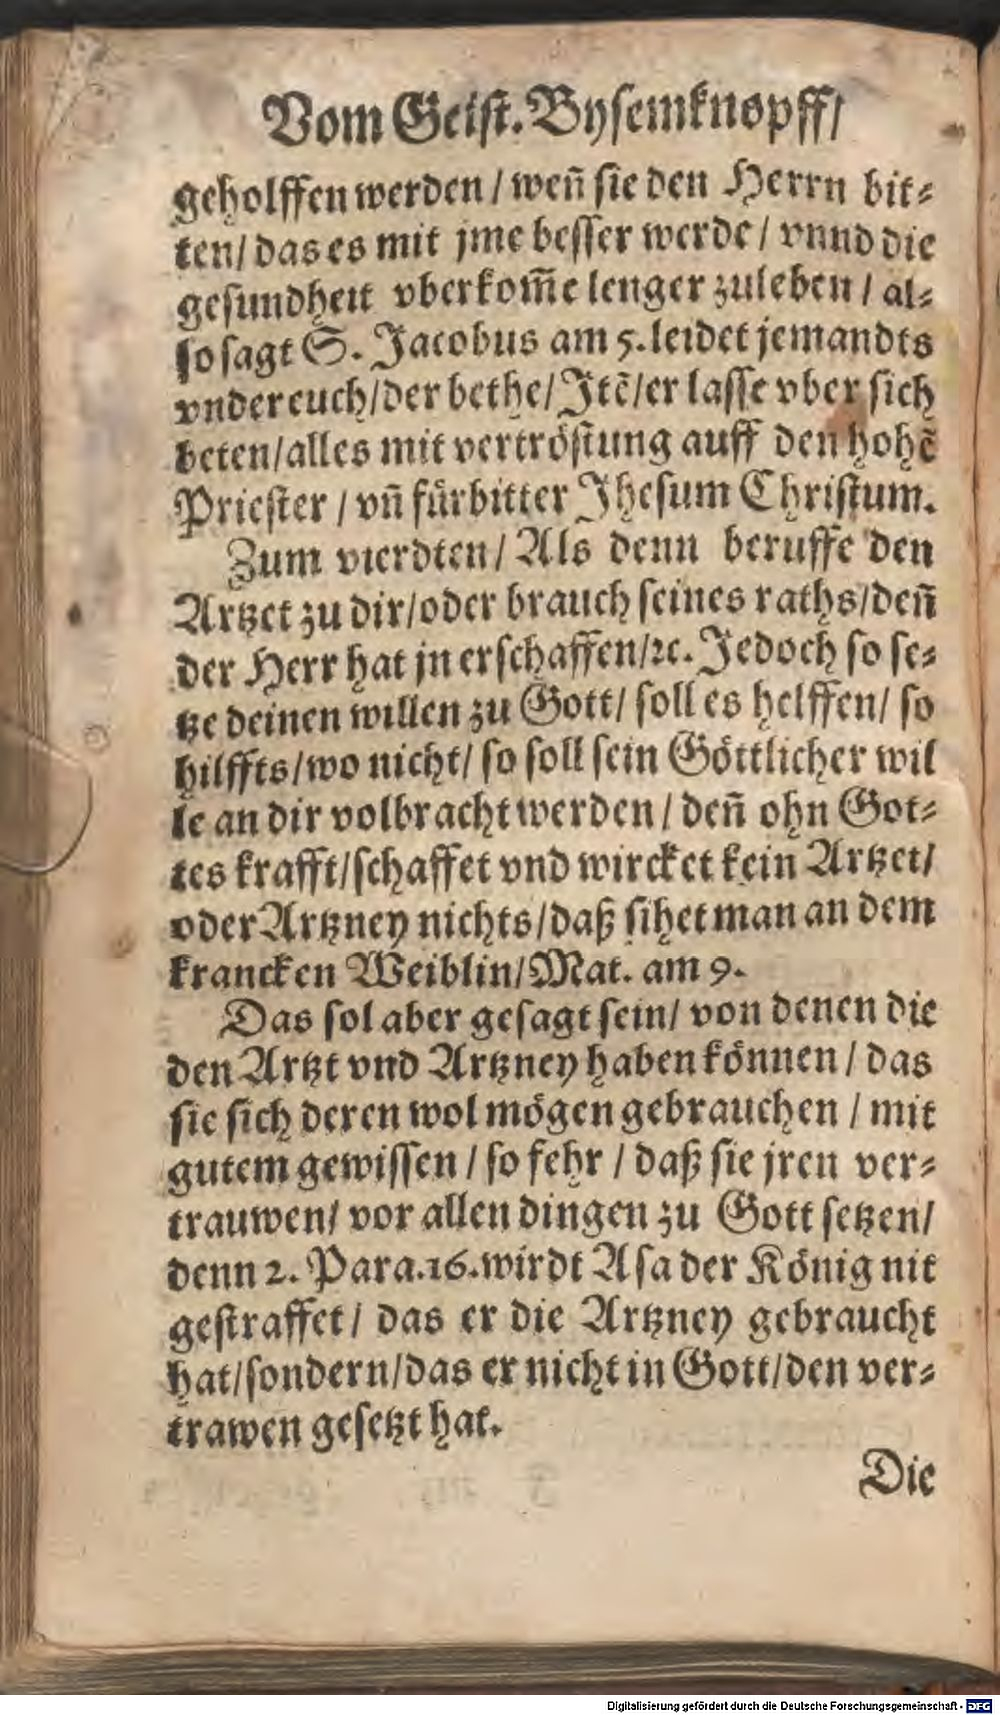 Vom Geist. Bysemknopff/
geholffen werden / weñ sie den Herrn bit⸗
ten/ das es mit jme besser werde / vnnd die
gesundheit vberkom̃e lenger zuleben / al⸗
so sagt S. Jacobus am 5. leidet jemandts
vnder euch/der bethe/ Jtẽ/er lasse vber sich
beten/alles mit vertröstung auff den hohẽ
Priester / vñ fürbitter Jhesum Christum.
Zum vierdten/ Als denn beruffe den
Artzet zu dir/oder brauch seines raths/deñ
der Herr hat jn erschaffen/ꝛc. Jedoch so se⸗
tze deinen willen zu Gott/ soll es helffen/ so
hilffts/wo nicht/ so soll sein Göttlicher wil
le an dir volbracht werden / deñ ohn Got⸗
tes krafft/schaffet vnd wircket kein Artzet/
oder Artzney nichts/daß sihet man an dem
krancken Weiblin/Mat. am 9.
Das sol aber gesagt sein/ von denen die
den Artzt vnd Artzney haben können / das
sie sich deren wol mögen gebrauchen / mit
gutem gewissen / so fehr / daß sie jren ver⸗
trauwen/ vor allen dingen zu Gott setzen/
denn 2. Para.16.wirdt Asa der König nit
gestraffet/ das er die Artzney gebraucht
hat/sondern/das er nicht in Gott/den ver⸗
trawen gesetzt hat.
Die
Digitalisierung gefördert durch die Deutsche Forschungsgemeinschaft - DFG